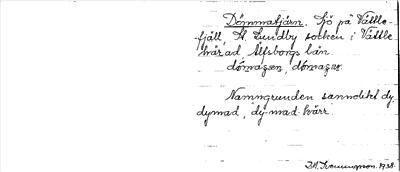 Dömmatjärn. Sjö på Vättle-
fjäll, St. Lundby socken i Vättle
härad Älfsborgs län.
Namngrunden sannolikt dy,
dymad, dy-mad-kärr.
1938.